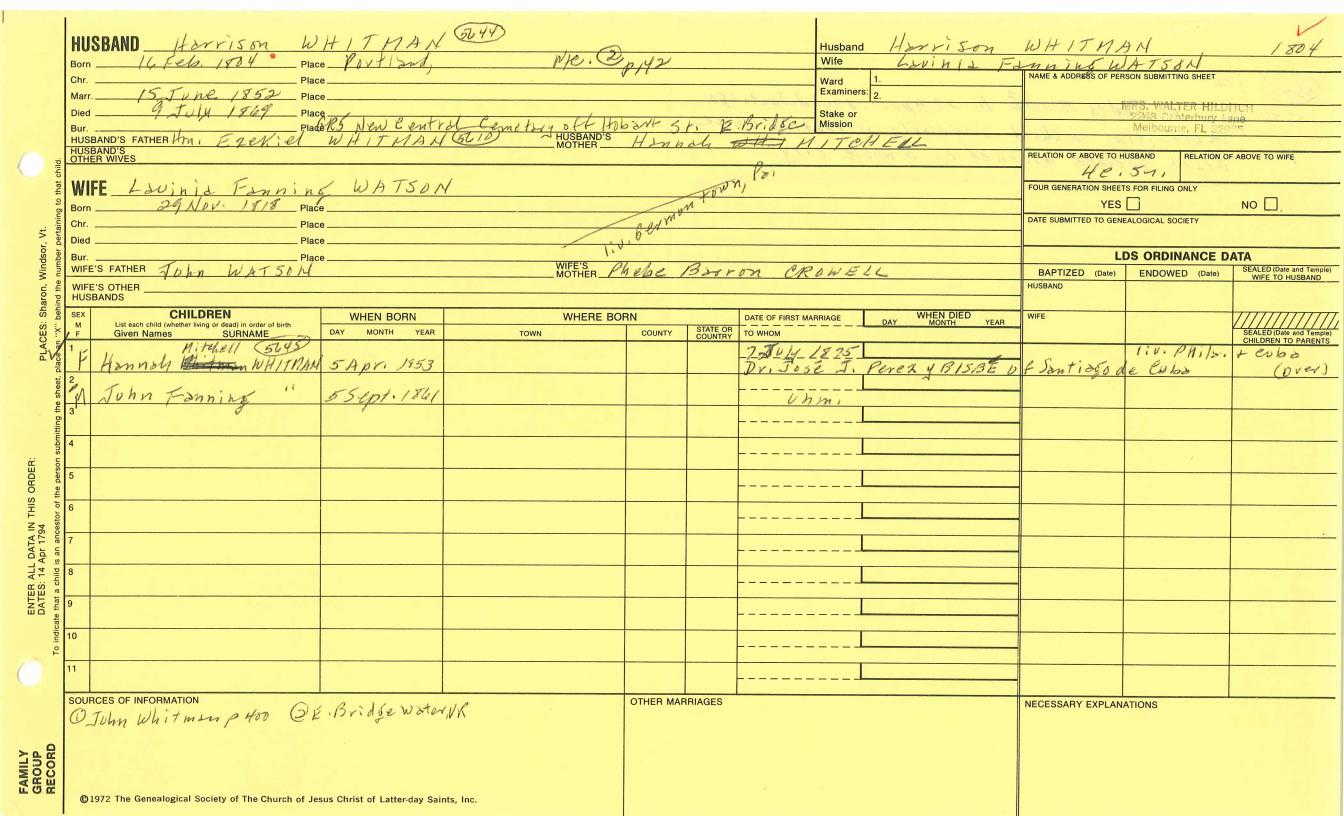 HUSBAND Harrison WHITMAN 5644
Born 16 Feb. 1804 Place Portland, Me. 2 p. 42
Chr. Place
Marr. 15 June 1852 Place
Died 9 July 1869 Place
Bur. Place GRS New Central Cemetary off Hobart St. E. Bridge
HUSBAND'S FATHER Hon. Ezekiel WHITMAN 5610 HUSBAND'S MOTHER Hannah MITCHELL
HUSBAND'S OTHER WIVES
WIFE Lavinia Fanning WATSON
Born 29 Nov. 1818 Place
Chr. Place
Died Place
Bur. Place
liv. Germantown, Pa.
WIFE'S FATHER John WATSON WIFE'S MOTHER Phebe Barron CROWELL
WIFE'S OTHER HUSBANDS
Husband Harrison WHITMAN 1804
Wife Lavinia Fanning WATSON
Ward Examiners: 1.
2.
Stake or Mission
NAME & ADDRESS OF PERSON SUBMITTING SHEET
MRS. WALTER HILDITCH
Canterbury Lane
Melbourne, FL
RELATION OF ABOVE TO HUSBAND RELATION OF ABOVE TO WIFE
FOUR GENERATION SHEETS FOR FILING ONLY
YES NO
DATE SUBMITTED TO GENEALOGICAL SOCIETY
LDS ORDINANCE DATA
BAPTIZED (Date) ENDOWED (Date) SEALED (Date and Temple) WIFE TO HUSBAND
HUSBAND
WIFE
SEALED (Date and Temple) CHILDREN TO PARENTS
SEX M F
CHILDREN
List each child (whether living or dead) in order of birth
Given Names SURNAME
WHEN BORN
DAY MONTH YEAR
WHERE BORN
TOWN COUNTY STATE OR COUNTRY
DATE OF FIRST MARRIAGE
TO WHOM
WHEN DIED
DAY MONTH YEAR
1 F Hannah Mitchell WHITMAN 5645 5 Apr. 1853 7 July 1825 liv. Phila. + Cuba
Dr. Jose J. Perez y BISBE of Santiago de Cuba (over)
2 M John Fanning " 5 Sept. 1861 unm.
3
4
5
6
7
8
9
10
11
SOURCES OF INFORMATION
① John Whitman p 400 ② E. Bridgewater VR
OTHER MARRIAGES
NECESSARY EXPLANATIONS
©1972 The Genealogical Society of The Church of Jesus Christ of Latter-day Saints, Inc.
FAMILY GROUP RECORD
ENTER ALL DATA IN THIS ORDER:
DATES: 14 Apr 1794
PLACES: Sharon, Windsor, Vt.
To indicate that a child is an ancestor of the person submitting the sheet, place an "X" behind the number pertaining to that child.